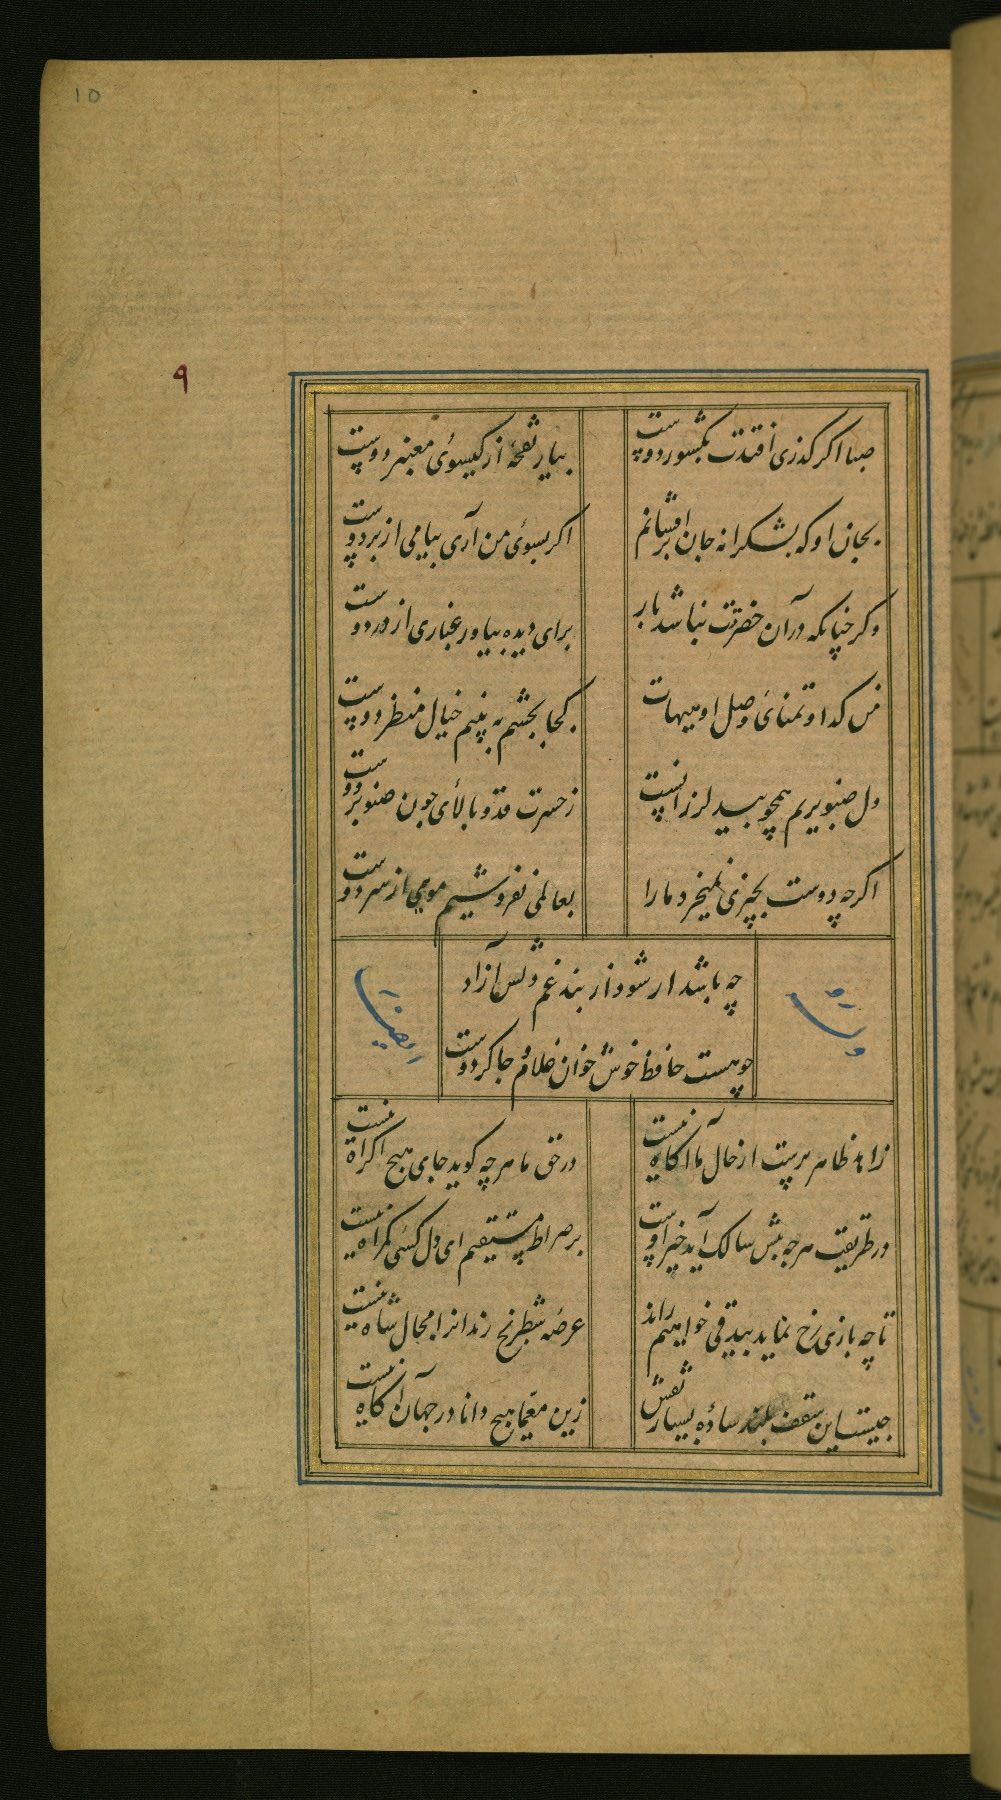 ۱۵
۹
صبا اکر کذری افتدت بکشور دوست
بیار نفحهٔ از کیسوی معنبر دوست
بجان او که بشکرانه جان برافشانم
اکر بسوی من آری پیامی از بر دوست
وکر چنانکه در آن حضرتت نباشد بار
برای دیده بیاور غباری از در دوست
من کدا و تمنای وصل او هیهات
کجا بچشم به بینم خیال منظر دوست
دل صنوبریم همچو بید لرزانست
زحسرت قد و بالای چون صنوبر دوست
اکرچه دوست بچیزی نمیخرد ما را
بعالمی نفروشیم مویی از سر دوست
چه باشد ار شود از بند غم دلش آزاد
چو هست حافظ خوش خوان غلام و چاکر دوست
وله ایضا
زاهد ظاهر پرست از حال ما آکاه نیست
در حق ما هرچه کوید جای هیچ اکراه نیست
در طریقت هرچه پیش سالک آید خیر اوست
بر صراط مستقیم ای دل کسی کمراه نیست
تا چه بازی رخ نماید بیدقی خواهیم راند
عرصه شطرنج رندانرا مجال شاه نیست
چیست این سقف بلند ساده بسیار نقش
زین معما هیچ دانا در جهان آکاه نیست